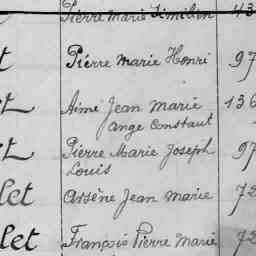 Pierre Marie Similien 43
t Pierre Marie Henri 97
et Aimé Jean Marie 136
ange Constant
et Pierre Marie Joseph 97
Louis
let Arsène Jean Marie 72
let François Pierre Marie 72